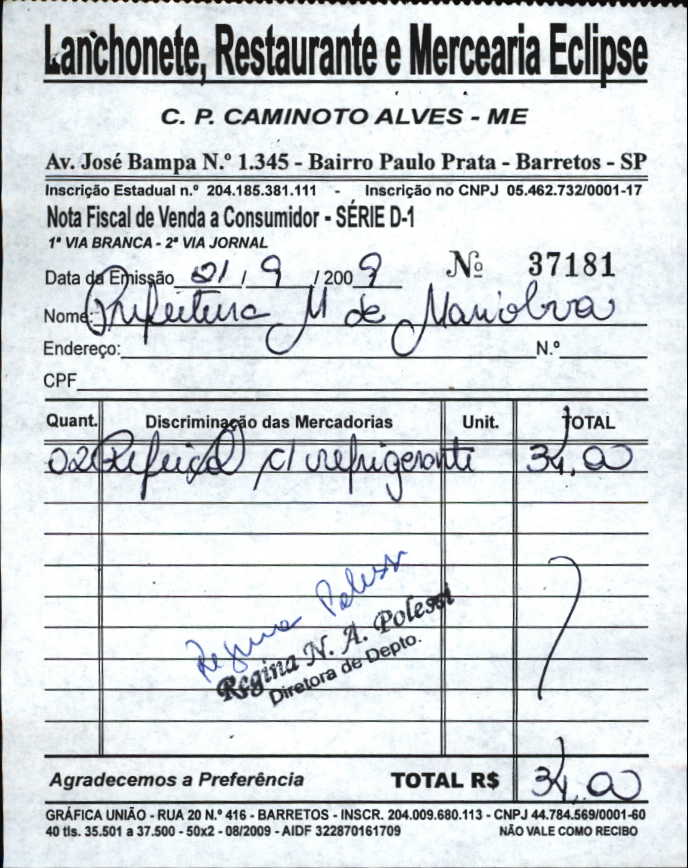 Lanchonete, Restaurante e Mercearia Eclipse
C. P. CAMINOTO ALVES - ME
Av. José Bampa N.º 1.345 - Bairro Paulo Prata - Barretos - SP
Inscrição Estadual n.º 204.185.381.111 - Inscrição no CNPJ 05.462.732/0001-17
Nota Fiscal de Venda a Consumidor - SÉRIE D-1
1ª VIA BRANCA - 2ª VIA JORNAL
Data da Emissão 01 / 9 / 2009 Nº 37181
Nome: Prefeitura M de
Endereço: N.º
CPF
Quant. Discriminação das Mercadorias Unit. TOTAL
02 Refeição c/ refrigerante 34,00
Regina Polessi
Regina N. A. Polessi
Diretora de Depto.
Agradecemos a Preferência TOTAL R$ 34,00
GRÁFICA UNIÃO - RUA 20 N.º 416 - BARRETOS - INSCR. 204.009.680.113 - CNPJ 44.784.569/0001-60
40 tls. 35.501 a 37.500 - 50x2 - 08/2009 - AIDF 322870161709 NÃO VALE COMO RECIBO